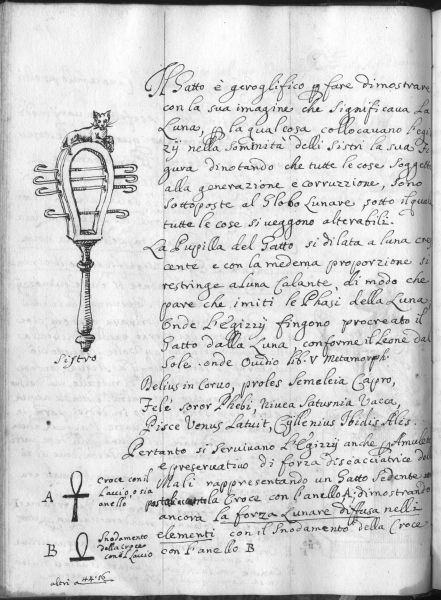 Il Gatto è geroglifico p fare dimostrare
con la sua imagine che significava La
Luna, p la qual cosa collocavano l'egi-
zij nella sommità delli sistri la sua fi-
gura dinotando che tutte le cose soggette
alla generazione e corruzzione, sono
sottoposte al Globo Lunare sotto il quale
tutte le cose si veggono alterabili.
La Pupilla del Gatto si dilata a luna cre-
scente e con la medema proporzione si
restringe a luna Calante, di modo che
pare che imiti le Phasi della Luna
Onde l'Egizzij fingono procreato il
Gatto dalla Luna, conforme il Leone dal
Sole. onde Ovidio lib: V Metamorph
Delius in Corvo, proles Semeleia Capro,
Fele soror Phebi, Nivea Saturnia Vacca,
Pisce Venus Latuit, Cyllenius Ibidis Ales.
Pertanto si servivano L'Egizzij anche p Amuleto
e preservativo di forza discacciatrice delli
Mali rappresentando un Gatto Sedente
la Croce con l'anello A; dimostrando
ancora la forza Lunare diffusa nelli
elementi con il Snodamento della Croce
con l'anello B
Sistro
A
Croce con il
Laccio, o sia
anello
B
Snodamento
della Croce
con il Laccio
altri a 44: 16